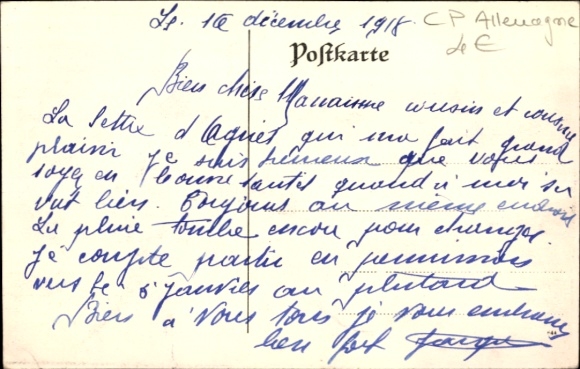 Le 12 décembre 1918
CP Allemagne
4 €
Postkarte
Bien chère cousin et cousine
La lettre d'Agnès qui m'a fait grand
plaisir je suis heureux que vous
soyez en bonne santé quand à moi sa
vat bien. Toujours au même endroit
La pluie tombe encore pour changer.
Je compte partir en permission
vers le 5 janvier au plutard
Bien a vous tous je vous embrasse
bien fort